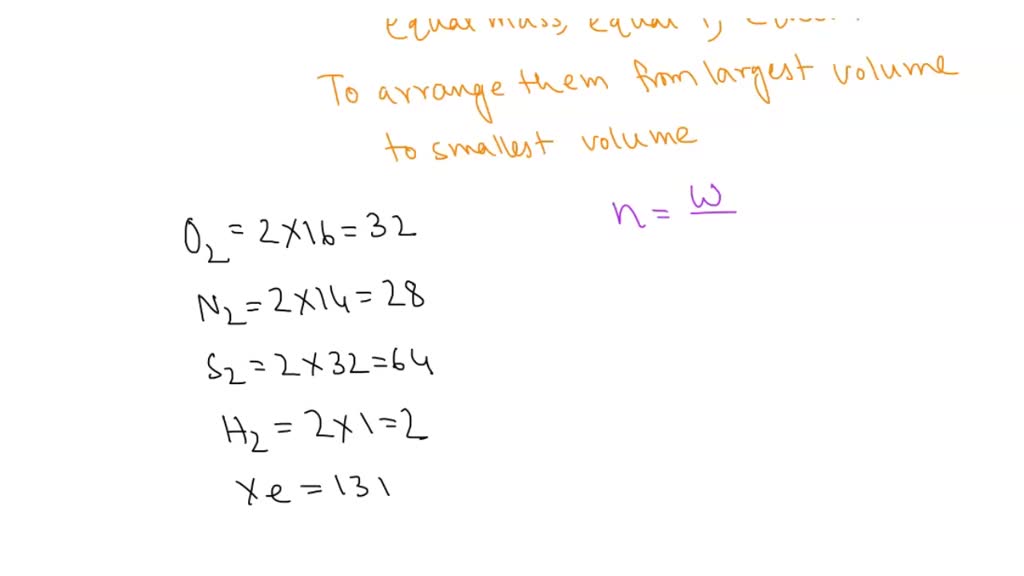 equal mass, equal
To arrange them from largest volume
to smallest volume
O2 = 2×16 = 32
N2 = 2×14 = 28
S2 = 2×32 = 64
H2 = 2×1 = 2
Xe = 131
n = w